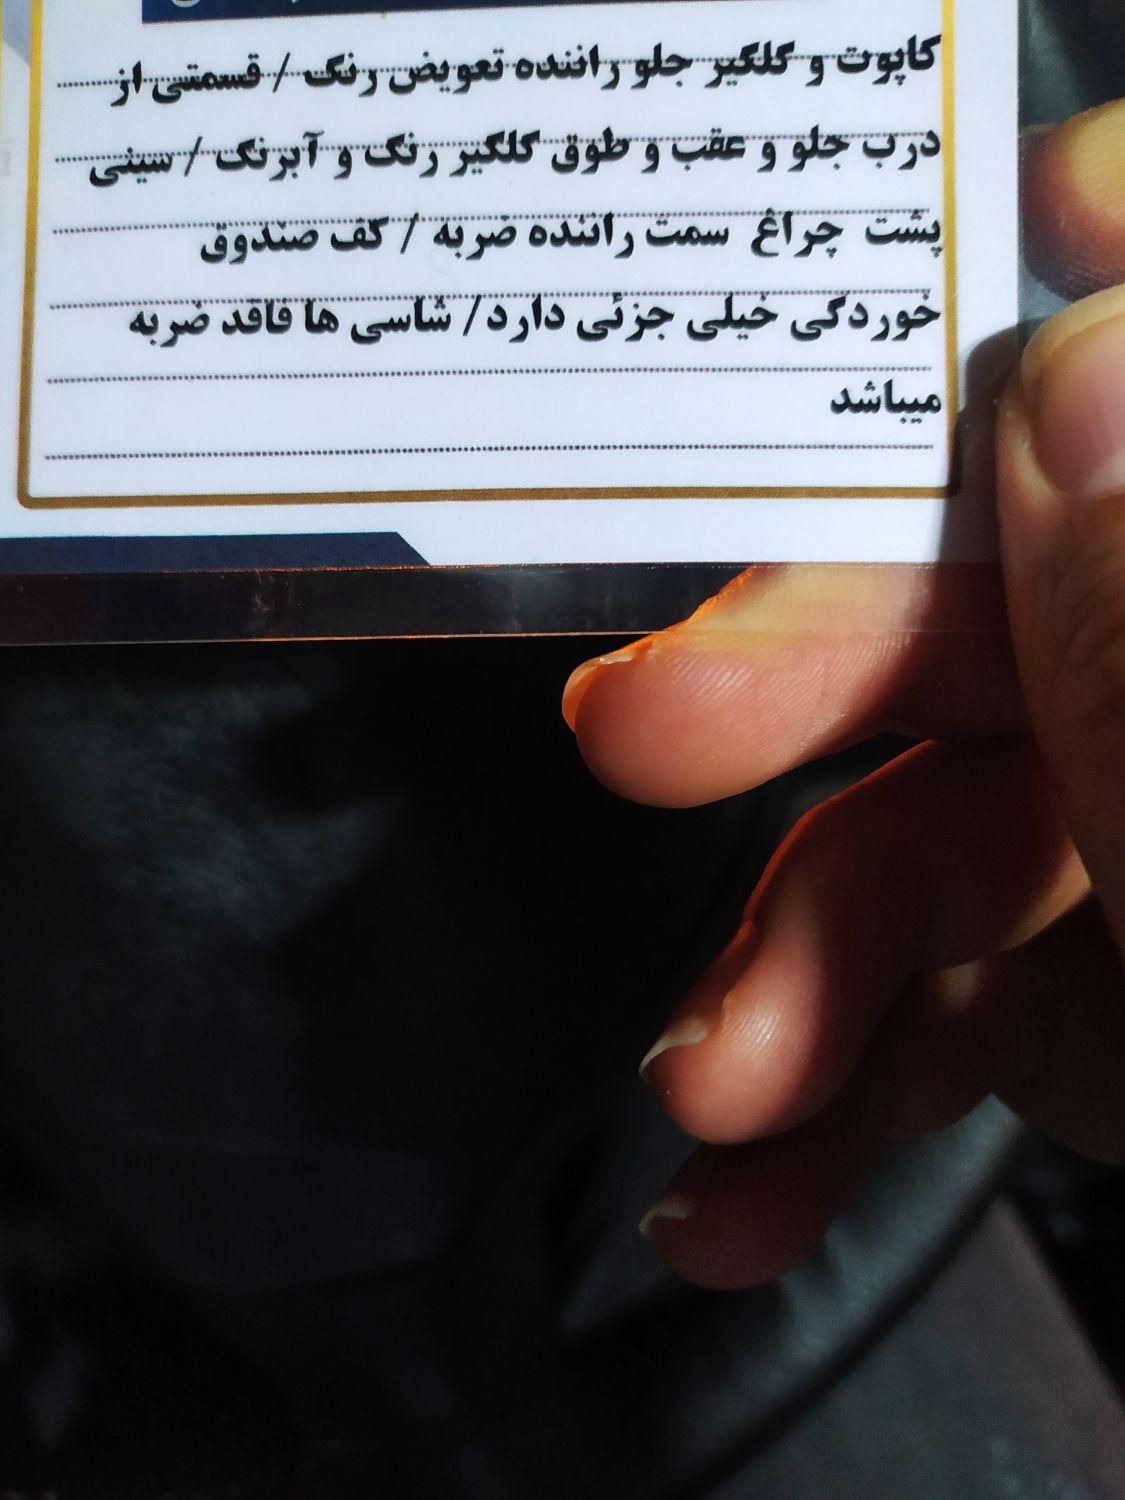 کاپوت و گلگیر جلو راننده تعویض رنگ / قسمتی از
درب جلو و عقب و طوق گلگیر رنگ و آبرنگ / سینی
پشت چراغ سمت راننده ضربه / کف صندوق
خوردگی خیلی جزئی دارد/ شاسی ها فاقد ضربه
میباشد